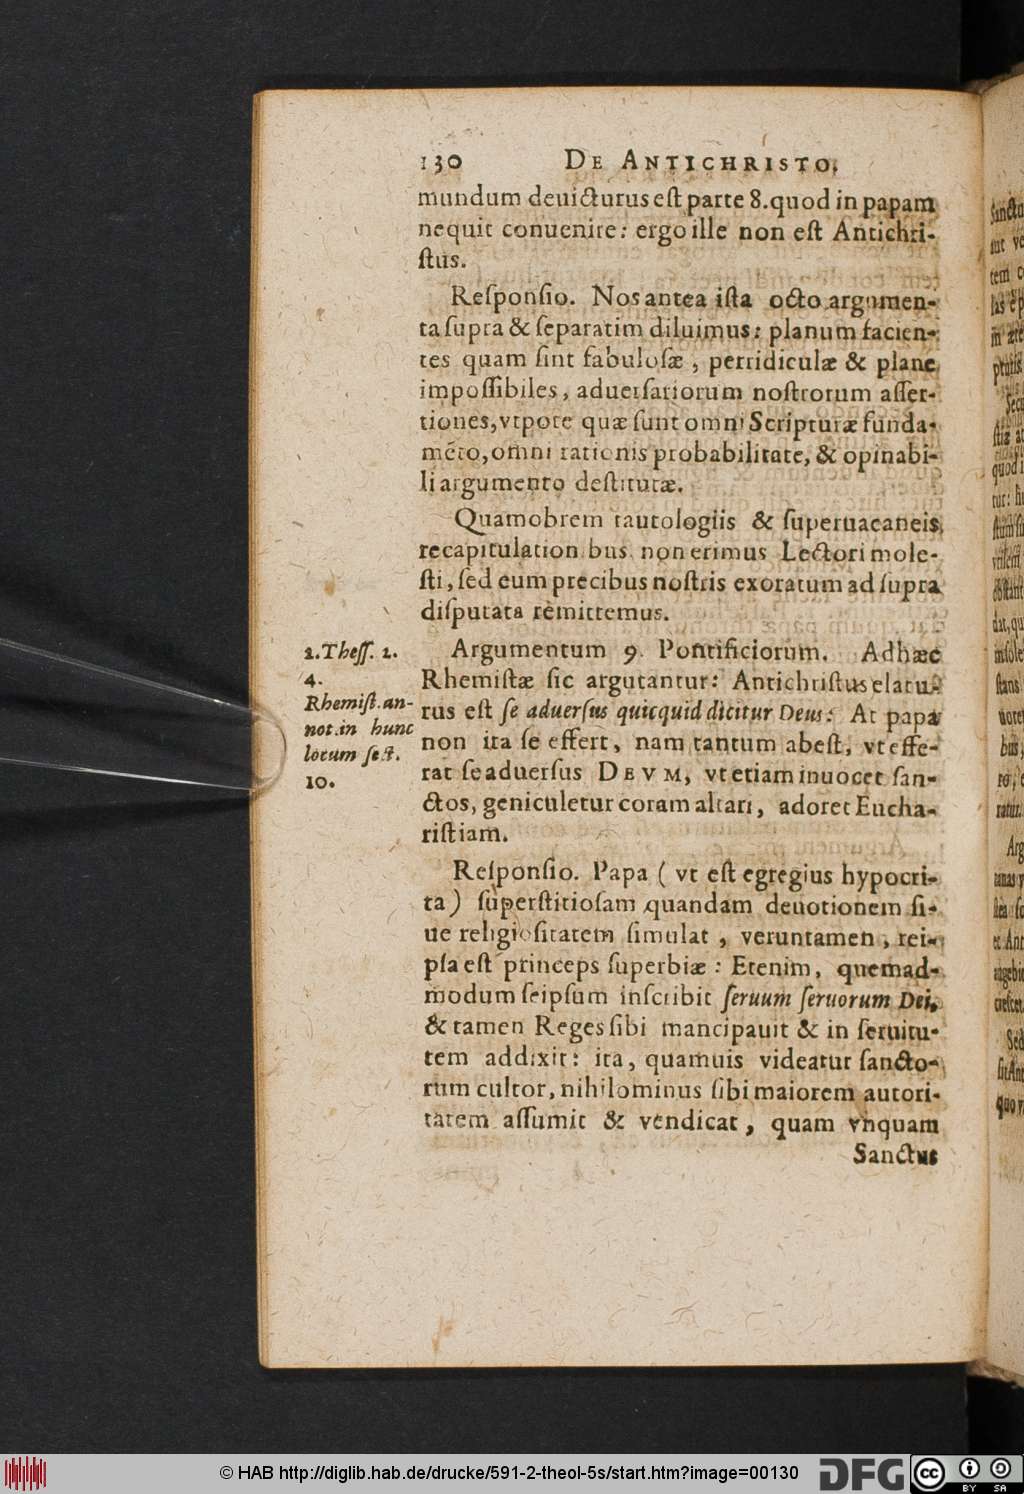 130 DE ANTICHRISTO.
mundum deuicturus eſt parte 8. quod in papam
nequit conuenire: ergo ille non eſt Antichri-
ſtus.
Reſponſio. Nos antea iſta octo argumen-
ta ſupra & ſeparatim diluimus: planum facien-
tes quam ſint fabuloſæ, perridiculæ & plane
impoſſibiles, aduerſariorum noſtrorum aſſer-
tiones, vtpote quæ ſunt omni Scripturæ funda-
mẽto, omni rationis probabilitate, & opinabi-
li argumento deſtitutæ.
Quamobrem tautologiis & ſuperuacaneis
recapitulationibus non erimus Lectori mole-
ſti, ſed eum precibus noſtris exoratum ad ſupra
diſputata remittemus.
Argumentum 9. Pontificiorum. Adhæc
Rhemiſtæ ſic argutantur: Antichriſtus elatu-
rus eſt ſe aduerſus quicquid dicitur Deus: At papa
non ita ſe effert, nam tantum abeſt, vt effe-
rat ſe aduerſus DEVM, vt etiam inuocet ſan-
ctos, geniculetur coram altari, adoret Eucha-
riſtiam.
2. Theſſ. 2.
4.
Rhemiſt. an-
not. in hunc
locum ſect.
10.
Reſponſio. Papa (vt eſt egregius hypocri-
ta) ſuperſtitioſam quandam deuotionem ſi-
ue religioſitatem ſimulat, veruntamen, rei-
pſa eſt princeps ſuperbiæ: Etenim, quemad-
modum ſeipſum inſcribit ſeruum ſeruorum Dei,
& tamen Reges ſibi mancipauit & in ſeruitu-
tem addixit: ita, quamuis videatur ſancto-
rum cultor, nihilominus ſibi maiorem autori-
tatem aſſumit & vendicat, quam vnquam
Sanctus
© HAB http://diglib.hab.de/drucke/591-2-theol-5s/start.htm?image=00130
DFG
cc
BY SA